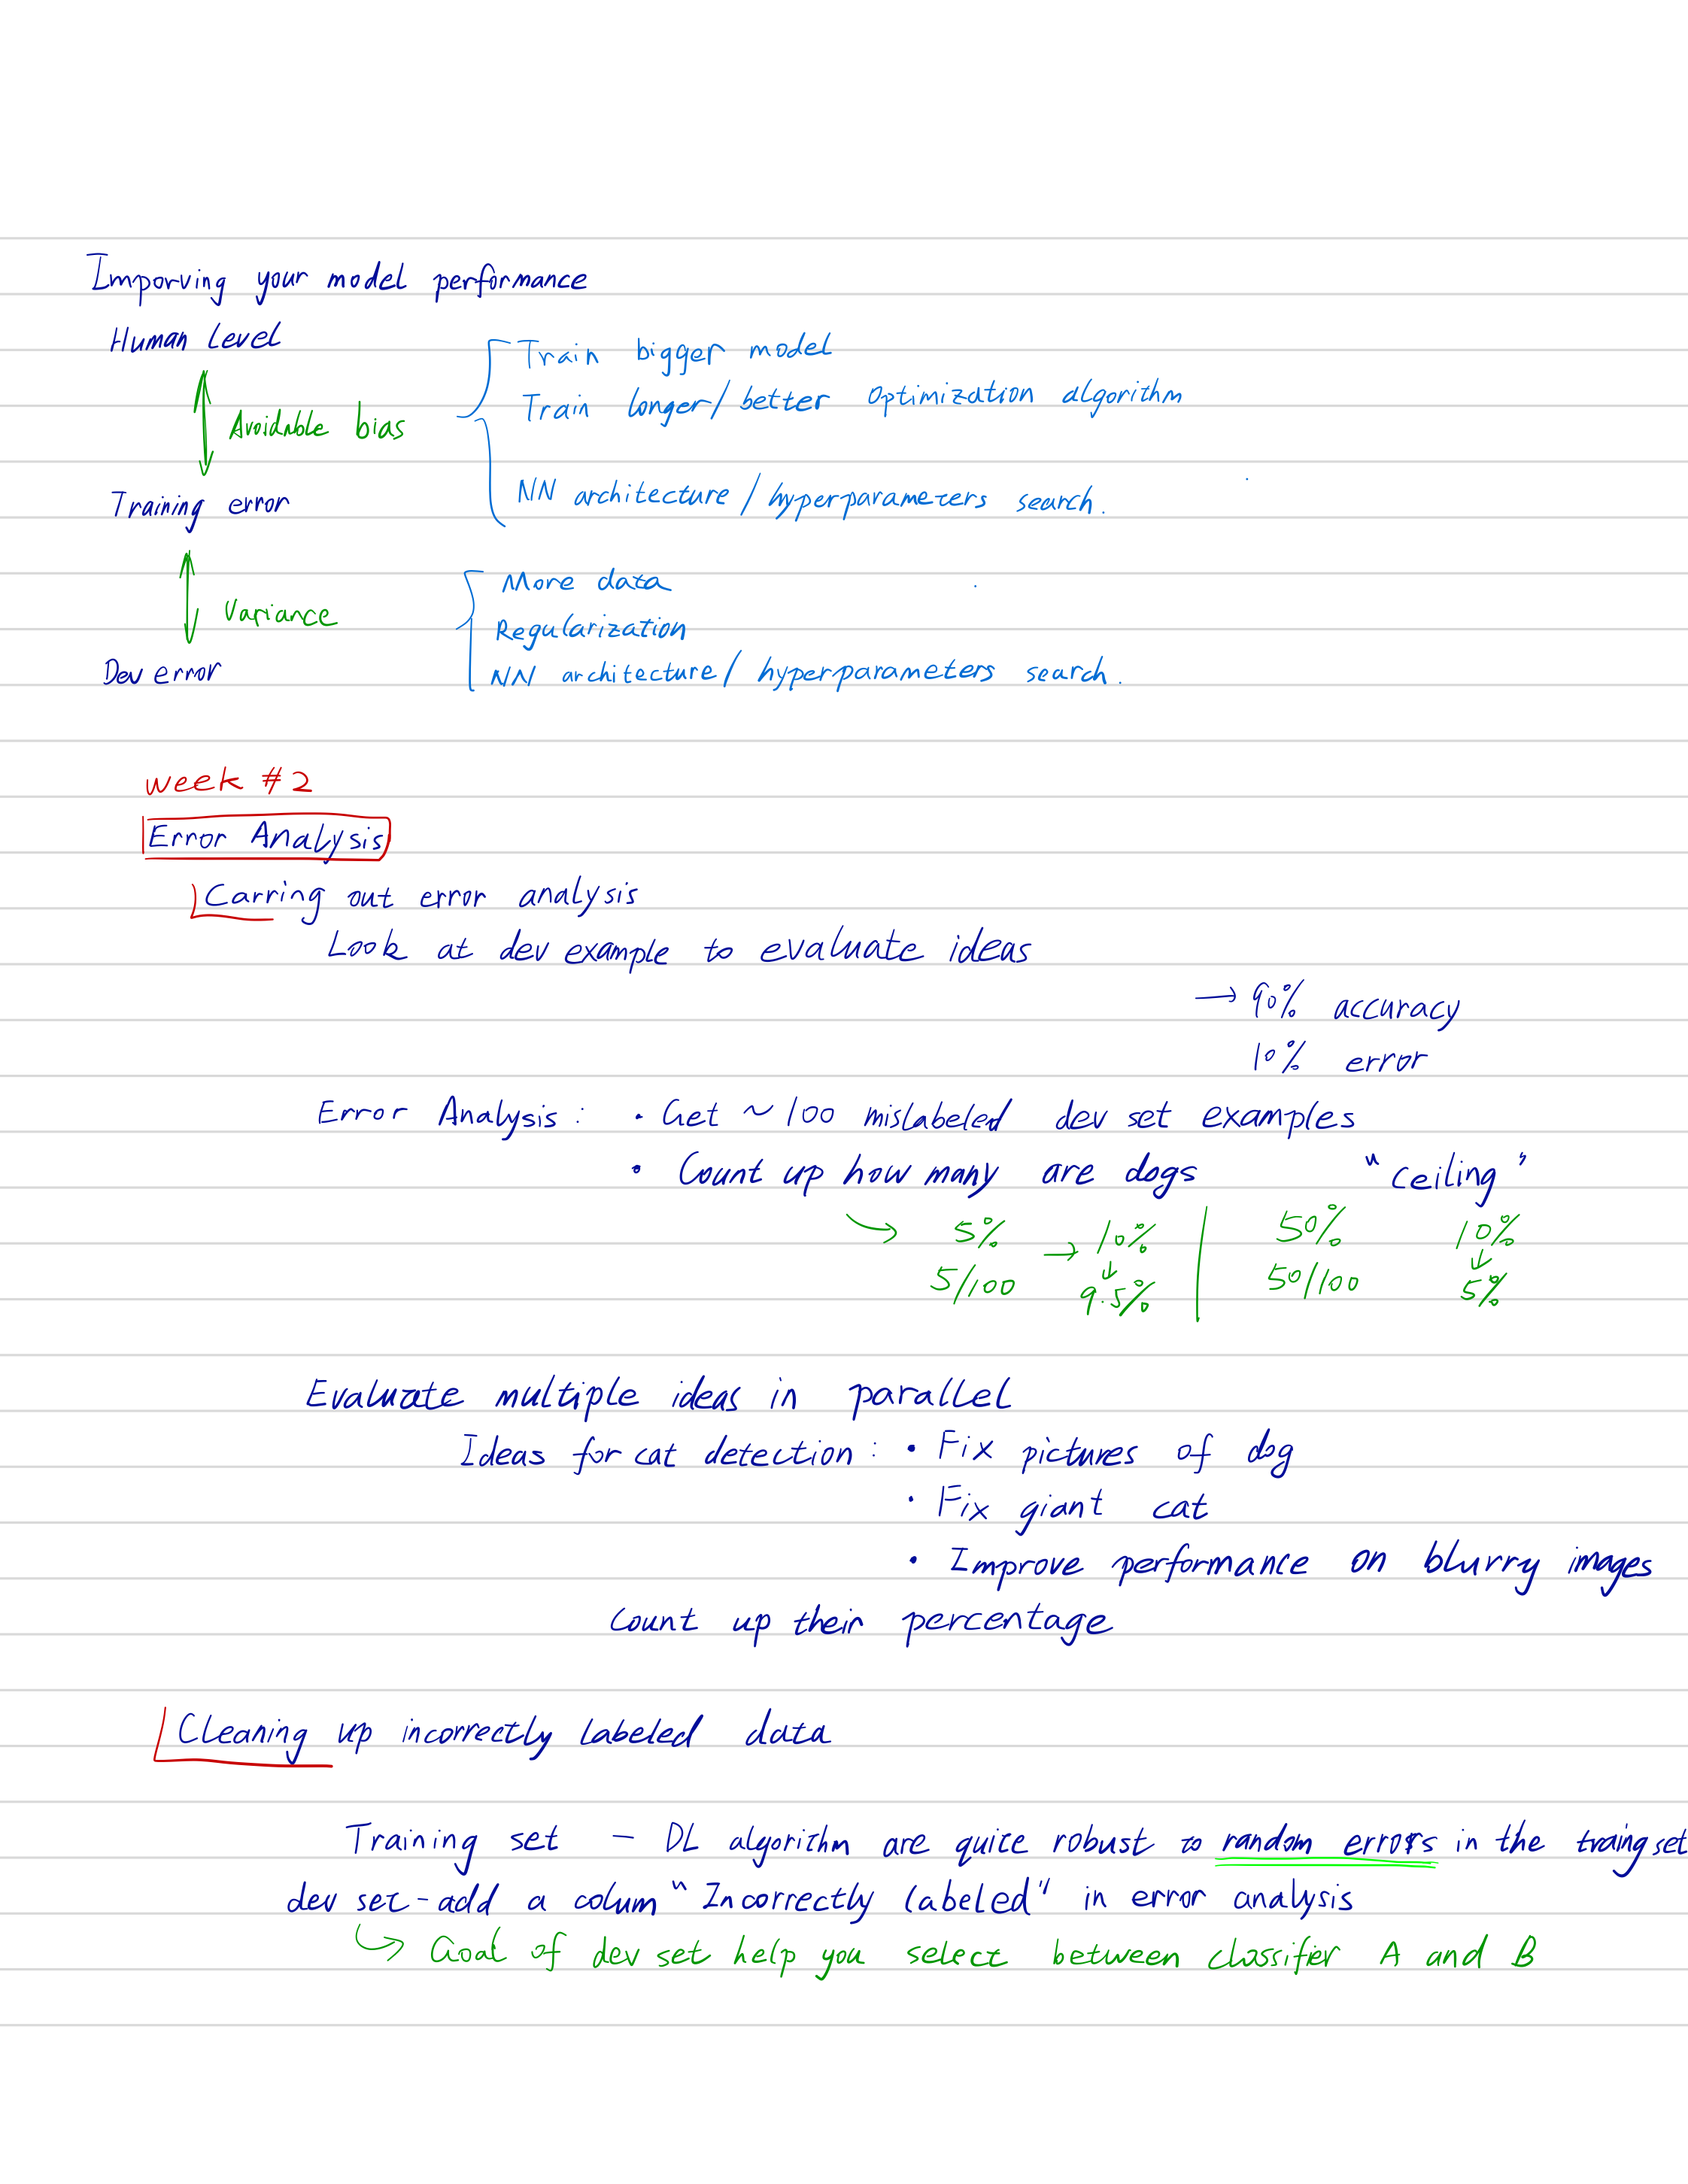 Imporving your model performance
Human Level
Train bigger model
Train longer/better optimization algorithm
Avoidable bias
NN architecture/hyperparameters search.
Training error
More data
Variance
Regularization
Dev error
NN architecture/hyperparameters search.
week #2
Error Analysis
Carring out error analysis
Look at dev example to evaluate ideas
→ 90% accuracy
10% error
Error Analysis: • Get ~100 mislabeled dev set examples
• Count up how many are dogs "ceiling"
→ 5% → 10% | 50% 10%
↓ ↓
5/100 9.5% | 50/100 5%
Evaluate multiple ideas in parallel
Ideas for cat detection: • Fix pictures of dog
• Fix giant cat
• Improve performance on blurry images
Count up their percentage
Cleaning up incorrectly labeled data
Training set – DL algorithm are quite robust to random errors in the traing set
dev set - add a colum "Incorrectly labeled" in error analysis
↪ Goal of dev set help you select between classifier A and B